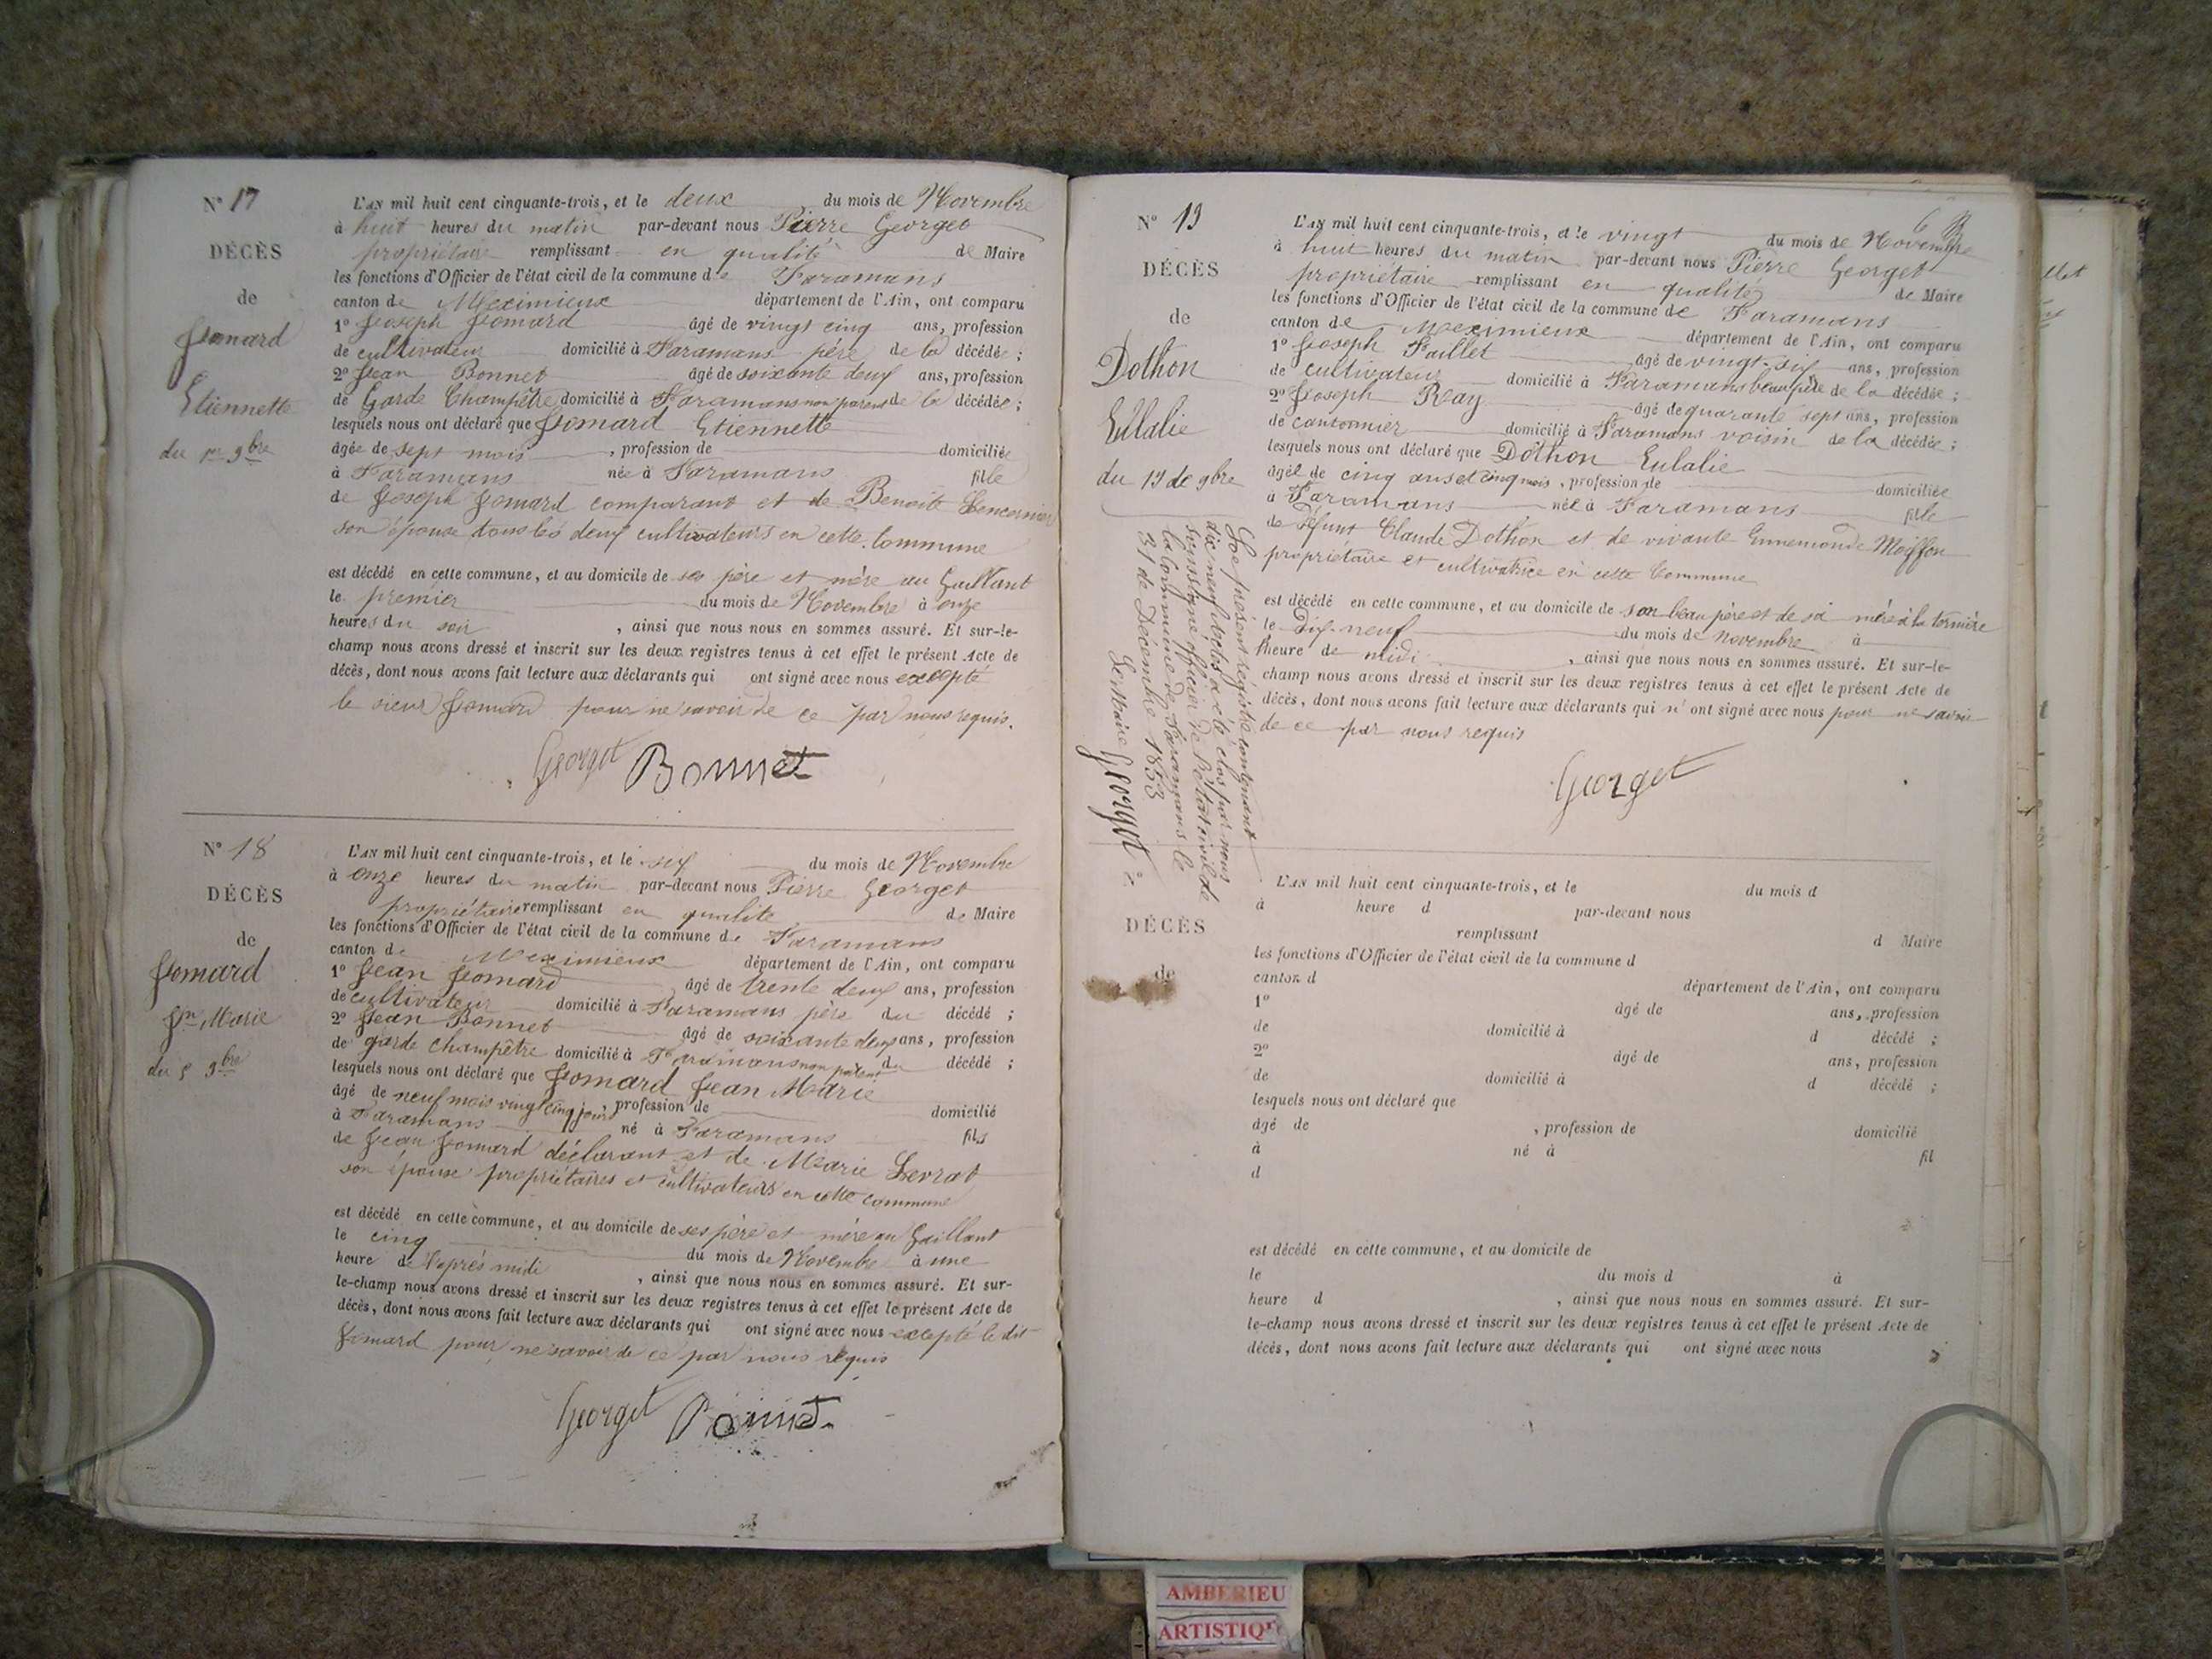 N° 17
DÉCÈS
de
Jomard
Etiennette
du 1er 9bre
L'AN mil huit cent cinquante-trois, et le deux du mois de Novembre
à huit heures du matin par-devant nous Pierre Georget
propriétaire remplissant en qualité de Maire
les fonctions d'Officier de l'état civil de la commune de Faramans
canton de Meximieux département de l'Ain, ont comparu
1° Joseph Jomard âgé de vingt cinq ans, profession
de cultivateur domicilié à Faramans père de la décédée ;
2° Jean Bonnet âgé de soixante deux ans, profession
de Garde Champêtre domicilié à Faramans non parent de la décédée ;
lesquels nous ont déclaré que Jomard Etiennette
âgée de sept mois , profession de domiciliée
à Faramans née à Faramans fille
de Joseph Jomard comparant et de Benoite
son épouse tous les deux cultivateurs en cette Commune
est décédé en cette commune, et au domicile de ses père et mère au Gaillant
le premier du mois de Novembre à onze
heures du soir , ainsi que nous nous en sommes assuré. Et sur-le-
champ nous avons dressé et inscrit sur les deux registres tenus à cet effet le présent Acte de
décès, dont nous avons fait lecture aux déclarants qui ont signé avec nous excepté
le sieur Jomard pour ne savoir de ce par nous requis.
Georget Bonnet
N° 18
DÉCÈS
de
Jomard
Jn Marie
du 5 9bre
L'AN mil huit cent cinquante-trois, et le six du mois de Novembre
à onze heures du matin par-devant nous Pierre Georget
propriétaire remplissant en qualité de Maire
les fonctions d'Officier de l'état civil de la commune de Faramans
canton de Meximieux département de l'Ain, ont comparu
1° Jean Jomard âgé de trente deux ans, profession
de cultivateur domicilié à Faramans père du décédé ;
2° Jean Bonnet âgé de soixante deux ans, profession
de garde champêtre domicilié à Faramans non parent du décédé ;
lesquels nous ont déclaré que Jomard Jean Marie
âgé de neuf mois vingt cinq jours , profession de domicilié
à Faramans né à Faramans fils
de Jean Jomard déclarant et de Marie Levrat
son épouse propriétaires et cultivateurs en cette commune
est décédé en cette commune, et au domicile de ses père et mère au Gaillant
le cinq du mois de Novembre à une
heure de l'après midi , ainsi que nous nous en sommes assuré. Et sur-
le-champ nous avons dressé et inscrit sur les deux registres tenus à cet effet le présent Acte de
décès, dont nous avons fait lecture aux déclarants qui ont signé avec nous excepté le dit
Jomard pour ne savoir de ce par nous requis
Georget Bonnet
N° 19
DÉCÈS
de
Dothon
Eulalie
du 19 de 9bre
L'AN mil huit cent cinquante-trois, et le vingt du mois de Novembre
à huit heures du matin par-devant nous Pierre Georget
propriétaire remplissant en qualité de Maire
les fonctions d'Officier de l'état civil de la commune de Faramans
canton de Meximieux département de l'Ain, ont comparu
1° Joseph Paillet âgé de vingt-six ans, profession
de cultivateur domicilié à Faramans beau père de la décédée ;
2° Joseph Ray âgé de quarante sept ans, profession
de cantonnier domicilié à Faramans voisin de la décédée ;
lesquels nous ont déclaré que Dothon Eulalie
âgée de cinq ans et cinq mois , profession de domiciliée
à Faramans née à Faramans fille
de défunt Claude Dothon et de vivante Ennemonde Moiffon
propriétaire et cultivatrice en cette Commune
est décédé en cette commune, et au domicile de son beau père et de sa mère à la
le Dix-neuf du mois de Novembre à
l'heure de midi , ainsi que nous nous en sommes assuré. Et sur-le-
champ nous avons dressé et inscrit sur les deux registres tenus à cet effet le présent Acte de
décès, dont nous avons fait lecture aux déclarants qui n'ont signé avec nous pour ne savoir
de ce par nous requis
Georget
Le présent régistre contenant
dix neuf actes a été clos par nous
soussigné officier de l'état civil de
la commune de Faramans le
31 de Décembre 1853
Le Maire Georget
DÉCÈS
de
L'AN mil huit cent cinquante-trois, et le du mois d
à heure d par-devant nous
remplissant d Maire
les fonctions d'Officier de l'état civil de la commune d
canton d département de l'Ain, ont comparu
1° âgé de ans, profession
de domicilié à d décédé ;
2° âgé de ans, profession
de domicilié à d décédé ;
lesquels nous ont déclaré que
âgé de , profession de domicilié
à né à fil
d
est décédé en cette commune, et au domicile de
le du mois d à
heure d , ainsi que nous nous en sommes assuré. Et sur-
le-champ nous avons dressé et inscrit sur les deux registres tenus à cet effet le présent Acte de
décès, dont nous avons fait lecture aux déclarants qui ont signé avec nous
AMBERIEU
ARTISTIQUE